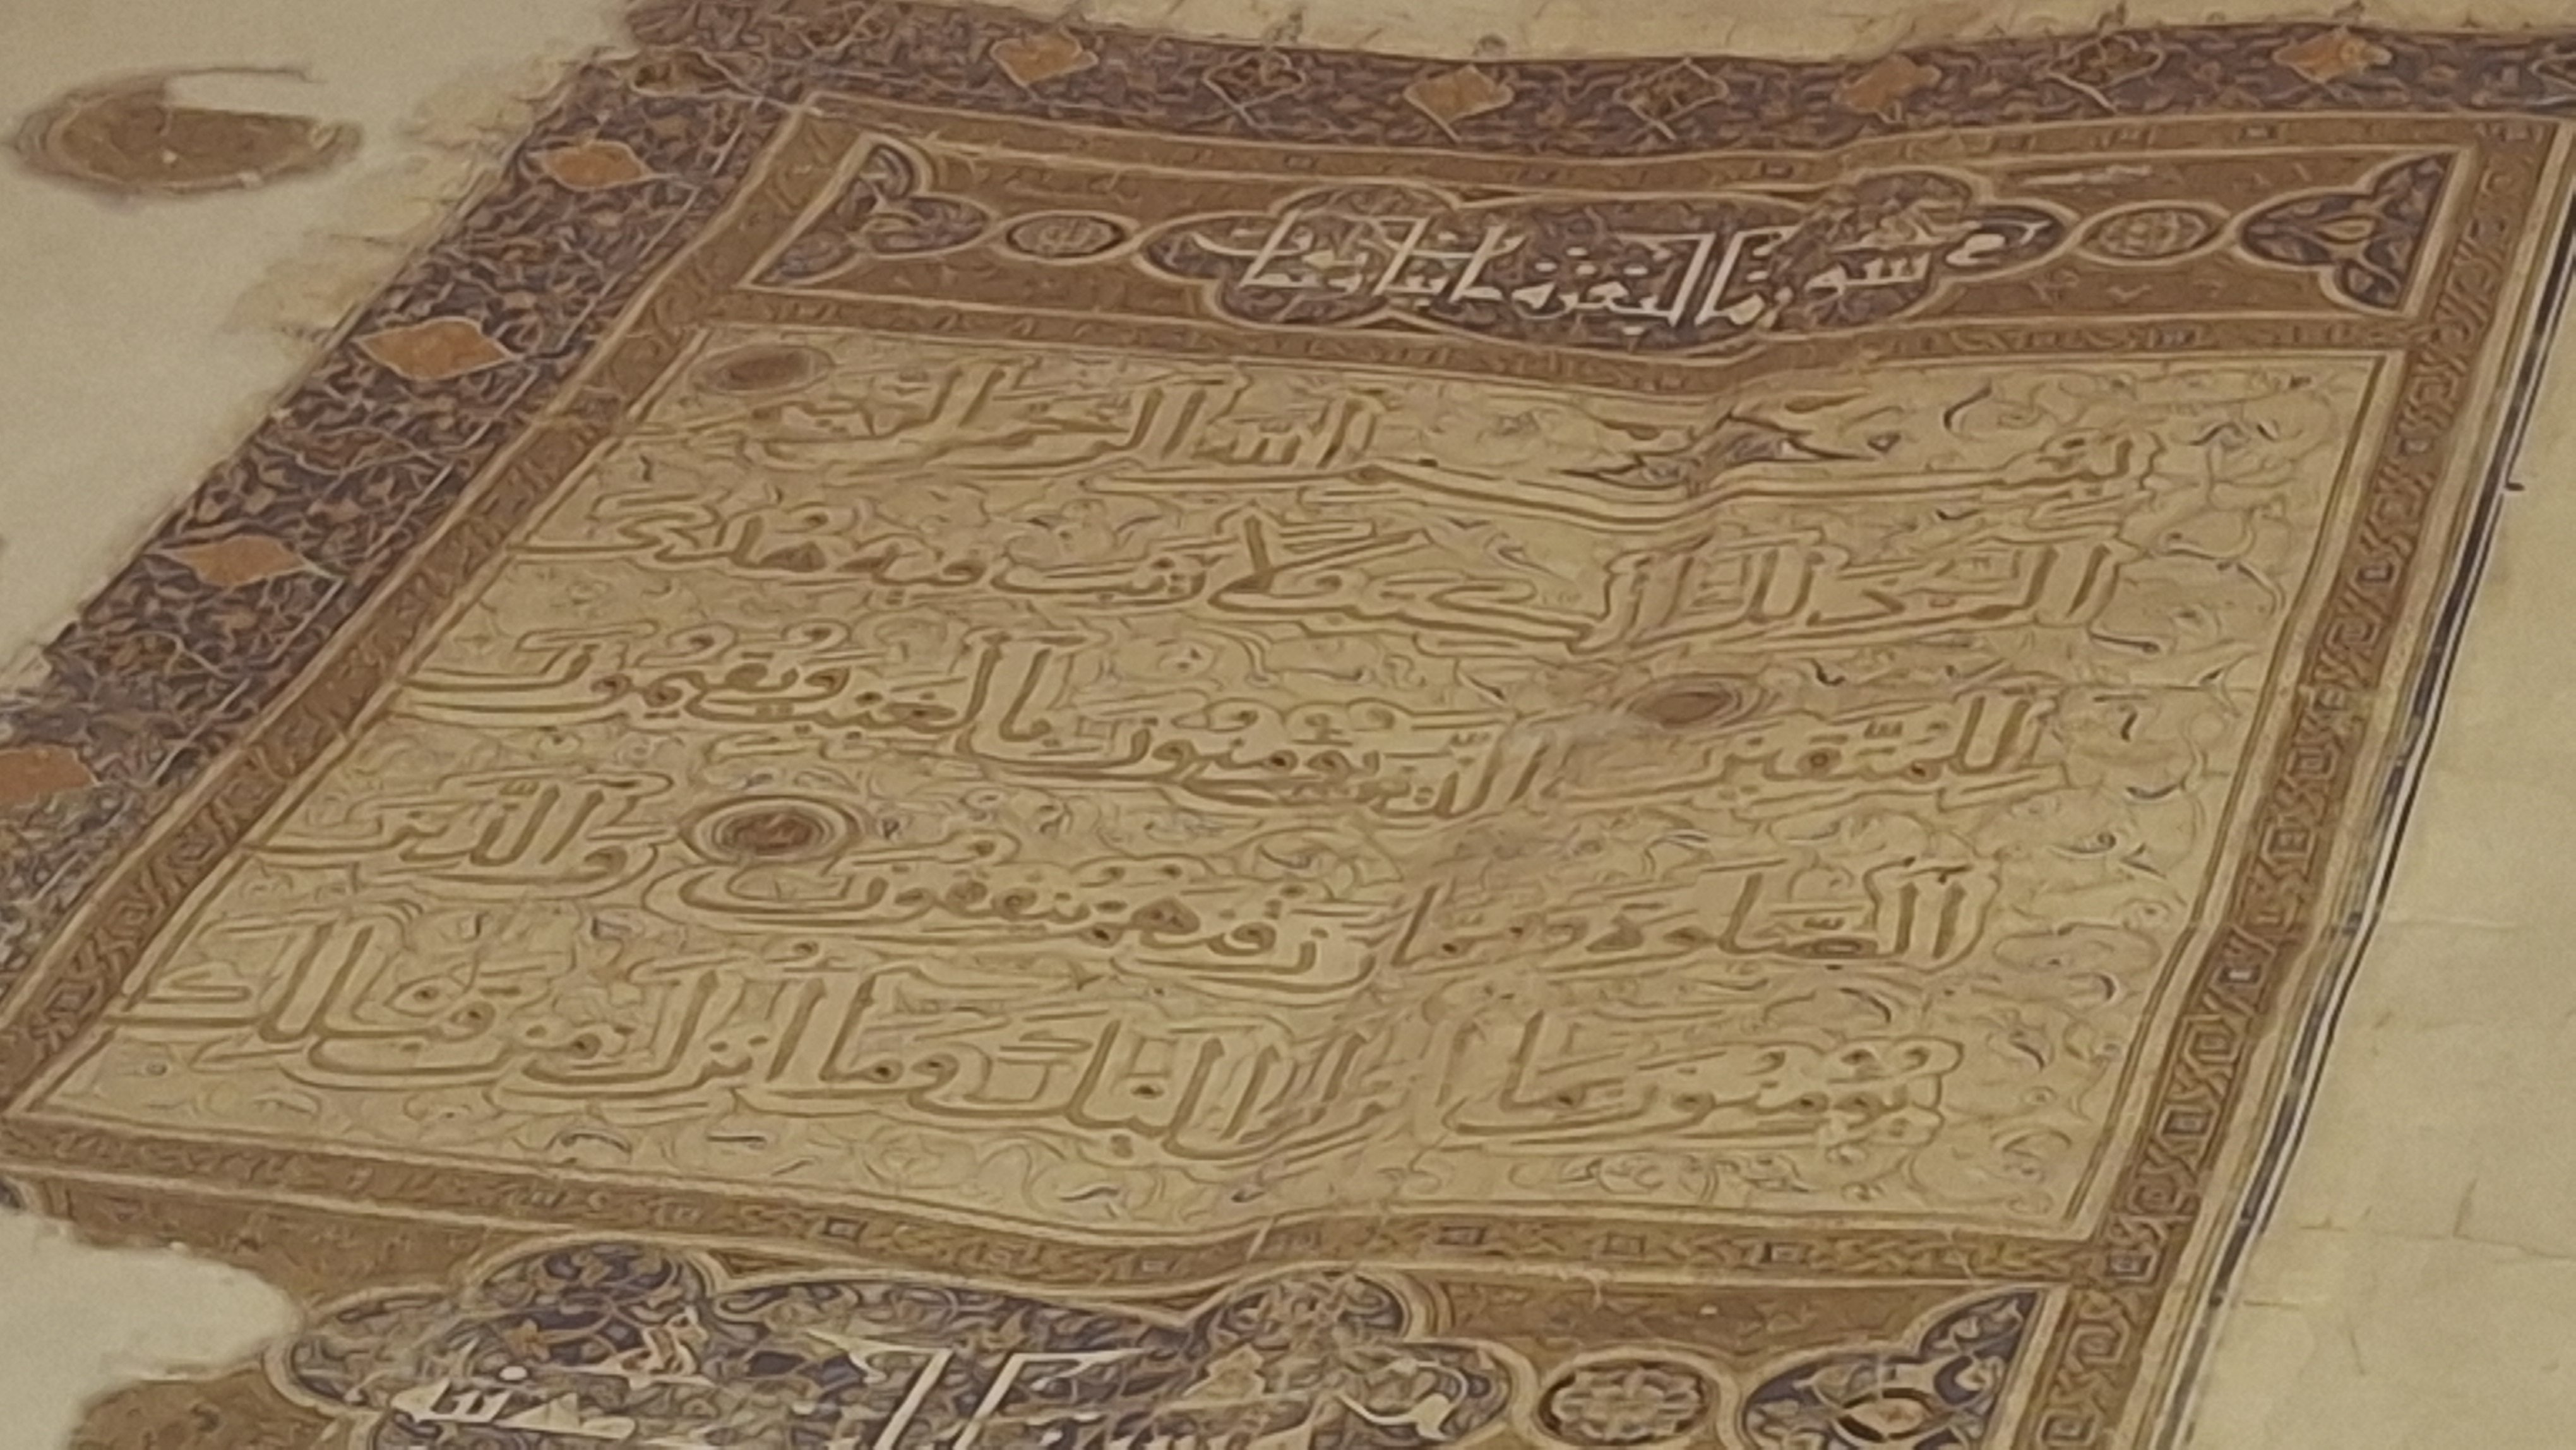 سورة البقرة مائتان وثمانون
بسم الله الرحمن الرحيم
الم ذلك الكتب لا ريب فيه هدى
للمتقين الذين يؤمنون بالغيب ويقيمون
الصلوة ومما رزقنهم ينفقون والذين
يؤمنون بما انزل اليك وما انزل من قبلك